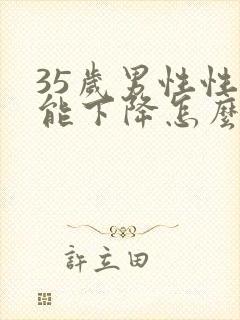 35歲男性性
能下降怎麼
許立田